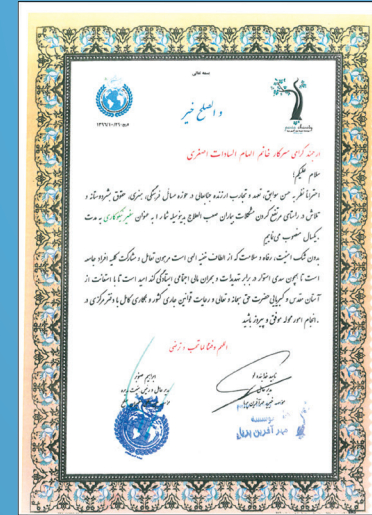 بسمه تعالی
و الصلح خیر
ارجمند گرامی سرکار خانم الهام السادات اصغری
سلام علیکم؛
احتراماً نظر به حسن سوابق، تعهد و تجارب ارزنده جنابعالی در حوزه مسائل فرهنگی، هنری، حقوق بشردوستانه و
تلاش در راستای مرتفع کردن مشکلات بیماران صعب العلاج بدینوسیله شما را به عنوان سفیر نیکوکاری به مدت
یکسال منصوب می نماییم
بدون شک امنیت، رفاه و سلامت که از الطاف خفیه الهی است مرهون تعامل و مشارکت کلیه افراد جامعه
است تا بتوان سدی استوار در برابر تهدیدات و بحران های اجتماعی ایستادگی کند امید است تا با استعانت از
آستان مقدس و کبریایی حضرت حق سبحانه و تعالی و رعایت قوانین جاری کشور و همکاری کامل با دفتر مرکزی در
انجام امور محوله موفق و پیروز باشید.
اللهم وفقنا لما تحب و ترضی
موسسه
مهر آفرین پریل